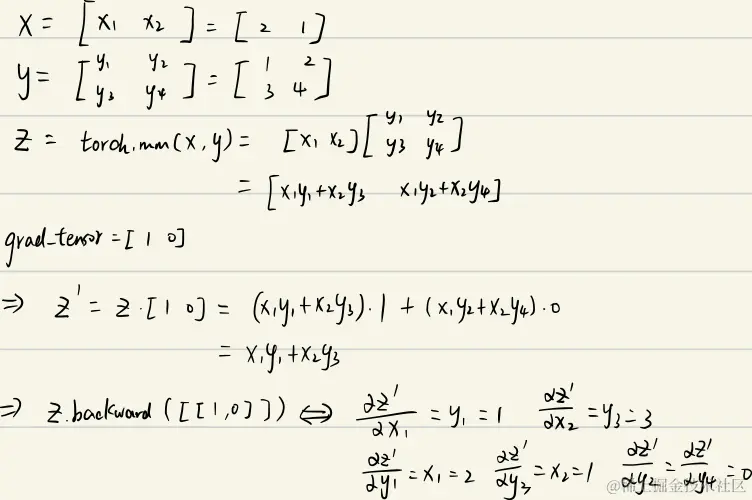 x = [ x₁ x₂ ] = [ 2 1 ]
y = [ y₁ y₂ y₃ y₄ ] = [ 1 2 3 4 ]
z = torch.mm(x,y) = [x₁ x₂] [ y₁ y₂ y₃ y₄ ]
= [x₁y₁+x₂y₃ x₁y₂+x₂y₄]
grad_tensor = [ 1 0 ]
⇒ z' = z · [ 1 0 ] = (x₁y₁+x₂y₃)·1 + (x₁y₂+x₂y₄)·0
= x₁y₁+x₂y₃
⇒ z.backward([[1,0]]) ⇔ ∂z'/∂x₁ = y₁ = 1 ∂z'/∂x₂ = y₃ = 3
∂z'/∂y₁ = x₁ = 2 ∂z'/∂y₃ = x₂ = 1 ∂z'/∂y₂ = ∂z'/∂y₄ = 0
@稀土掘金技术社区